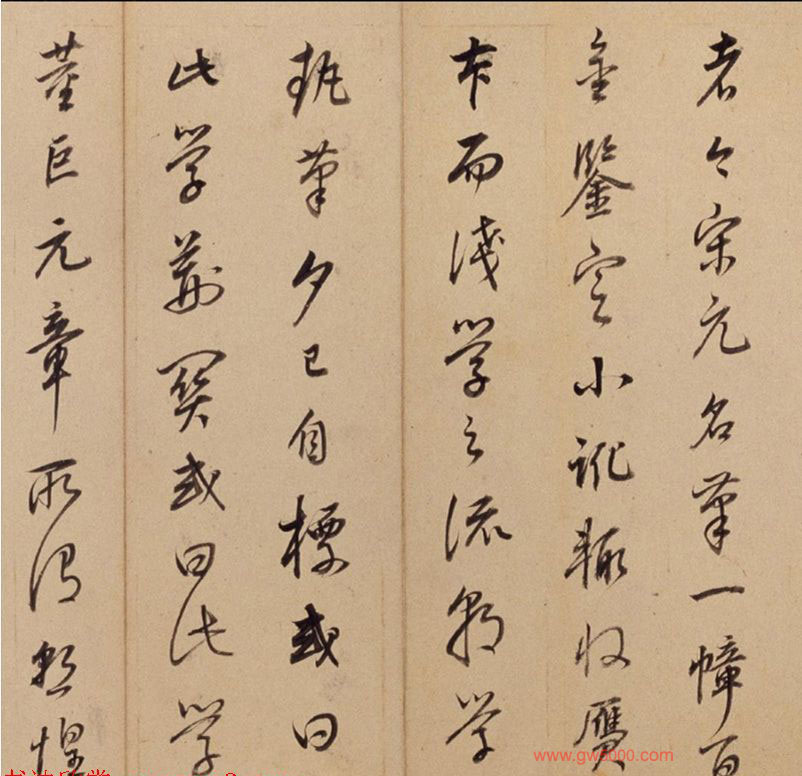 者今宋元名筆一幢百
金鑒定小訛輒收贗
本而淺學之流朝學
執筆夕已自標或曰
此學荊關或曰此學
董巨元章所謂慙惶